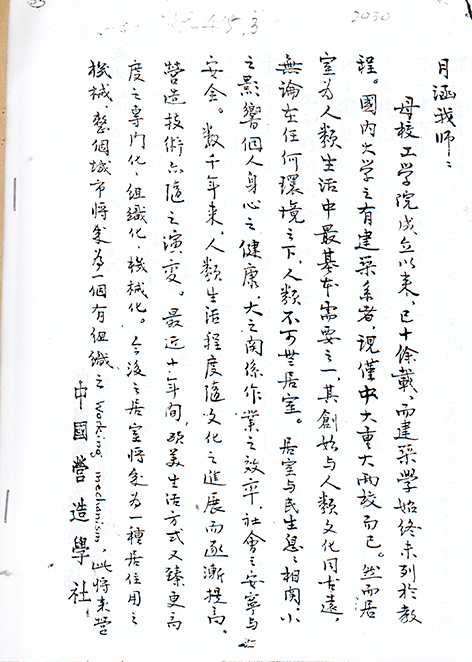 2030
月涵我師：
母校工学院成立以来，已十餘載，而建築学始終未列於教
程。國内大学之有建築系者，現僅中大重大两校而已。然而居
室為人類生活中最基本需要之一，其創始与人類文化同古遠，
無論在任何環境之下，人類不可無居室。居室与民生息息相関，小
之影響個人身心之健康，大之関係作業之效率，社會之安寧与
安全。数千年来，人類生活程度隨文化之進展而逐漸提高，
營造技術亦隨之演変。最近十年間，欧美生活方式又臻更高
度之専门化、组織化、機械化。今後之居室将成為一種居住用之
機械，整個城市将成為一個有组織之 Working mechanism，此将来營
中國營造學社